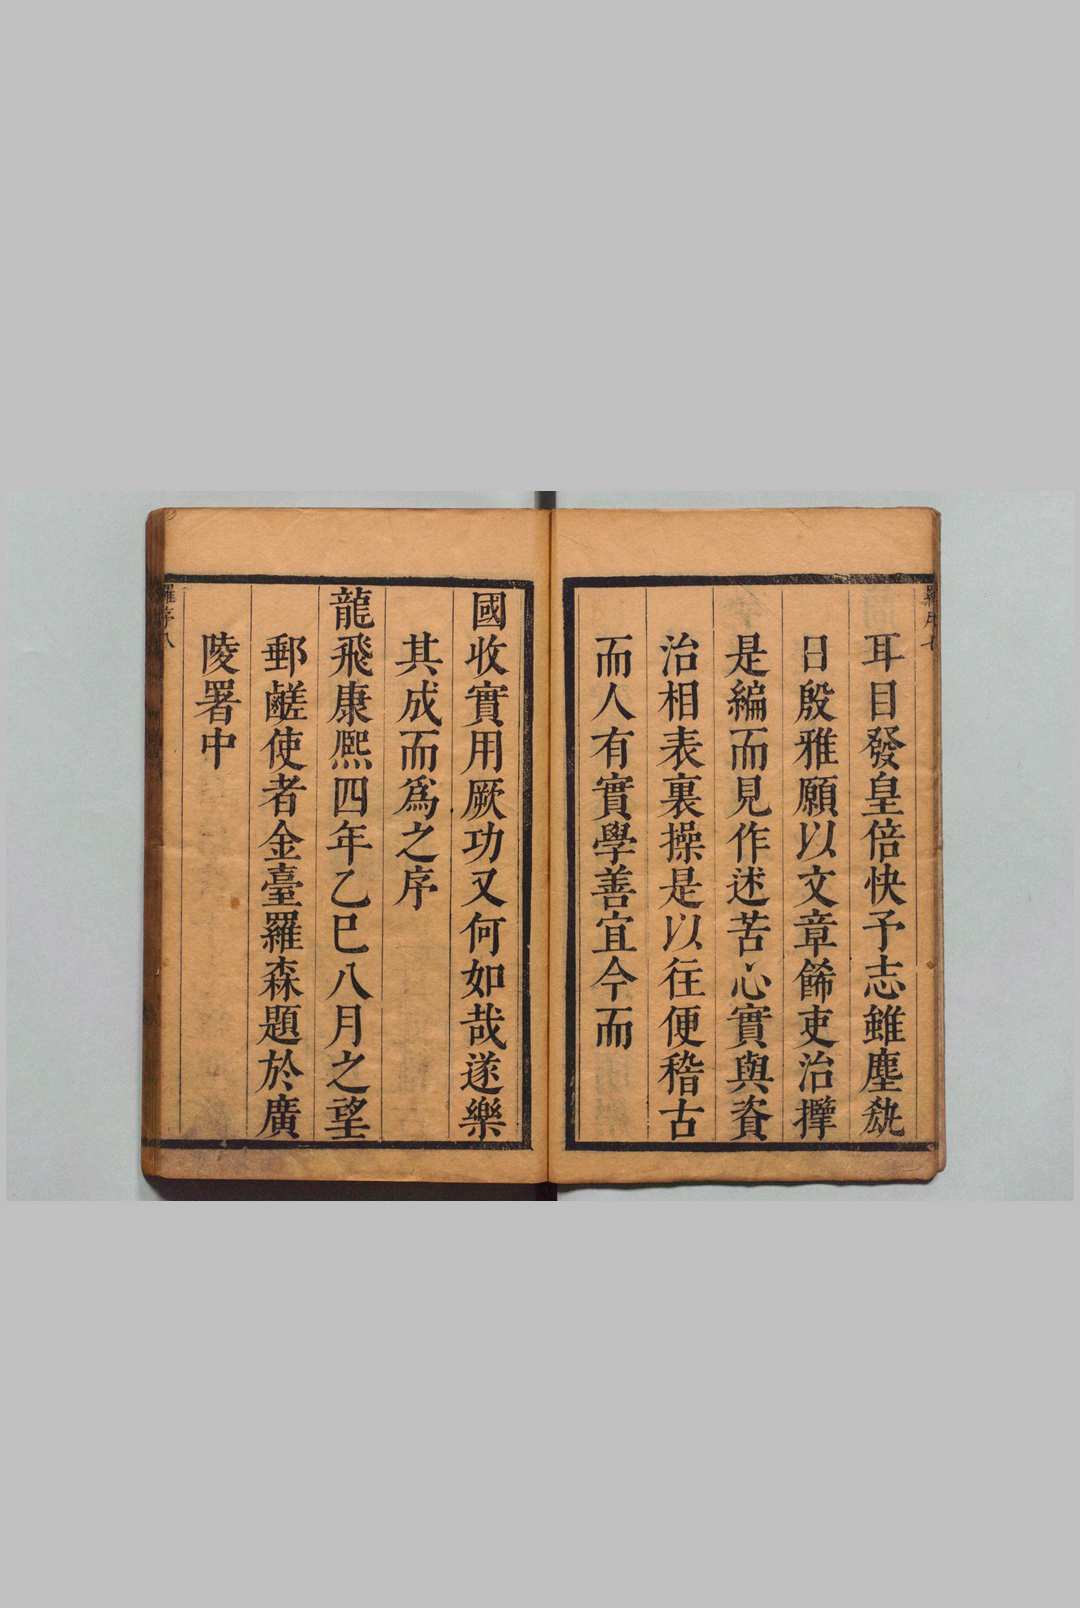 耳目發皇倍快予志雖塵𫝑
日殷雅願以文章餙吏治㨮
是編而見作述苦心實與資
治相表裏操是以往便稽古
而人有實學善宜今而
國收實用厥功又何如哉遂樂
其成而爲之序
龍飛康熈四年乙巳八月之望
郵鹺使者金臺羅森題於廣
陵署中
羅序八